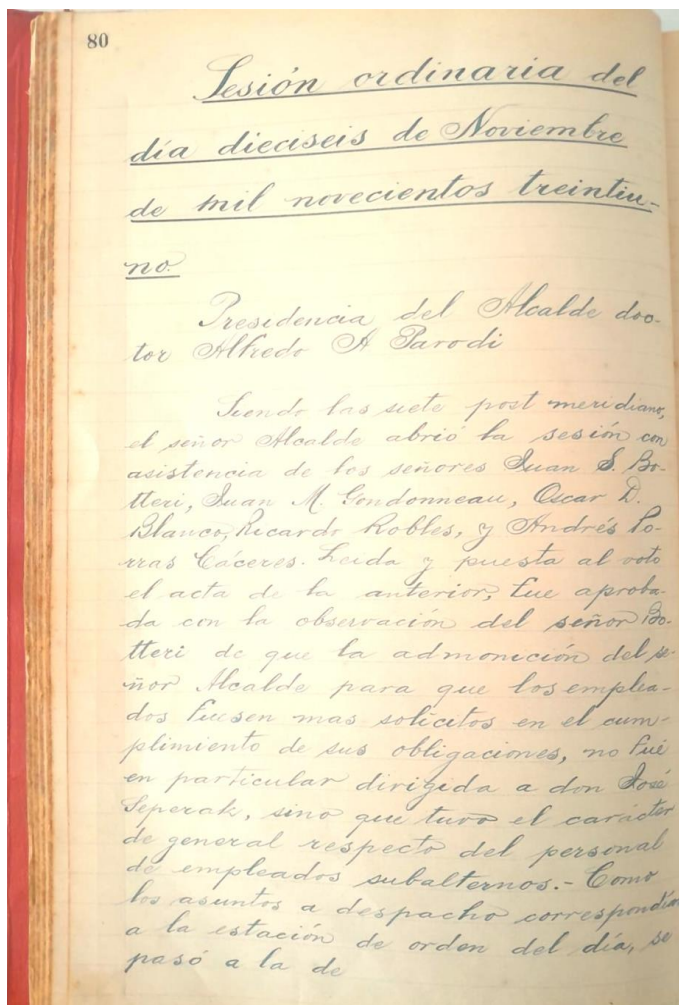 80
Sesión ordinaria del
día dieciseis de Noviembre
de mil novecientos treintiu-
no.
Presidencia del Alcalde doc-
tor Alfredo A Parodi
Siendo las siete post meridiano,
el señor Alcalde abrió la sesión con
asistencia de los señores Juan S. Bo-
tteri, Juan M. Gondonneau, Oscar D.
Blanco, Ricardo Robles, y Andrés Po-
rras Cáceres. Leida y puesta al voto
el acta de la anterior, fue aproba-
da con la observación del señor Bo-
tteri de que la admonición del se-
ñor Alcalde para que los emplea-
dos fuesen mas solícitos en el cum-
plimiento de sus obligaciones, no fué
en particular dirigida a don José
Seperak, sino que tuvo el carácter
de general respecto del personal
de empleados subalternos.- Como
los asuntos a despacho correspondían
a la estación de orden del día, se
pasó a la de